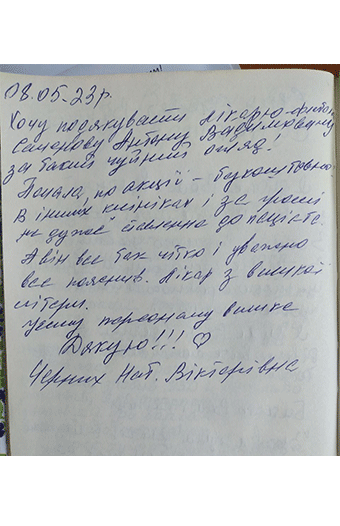 08.05.23р.
Хочу подякувати лікарю
Семенову Антону Вадимовичу
за такий чуйний огляд!
Попала по акції – безкоштовно
В інших клініках і за гроші
не дуже ставлення до пацієнта.
А він все так чітко і уважно
все пояснив. Лікар з великої
літери.
Усьому персоналу велике
Дякую!!! ♡
Черних Нат. Вікторівна